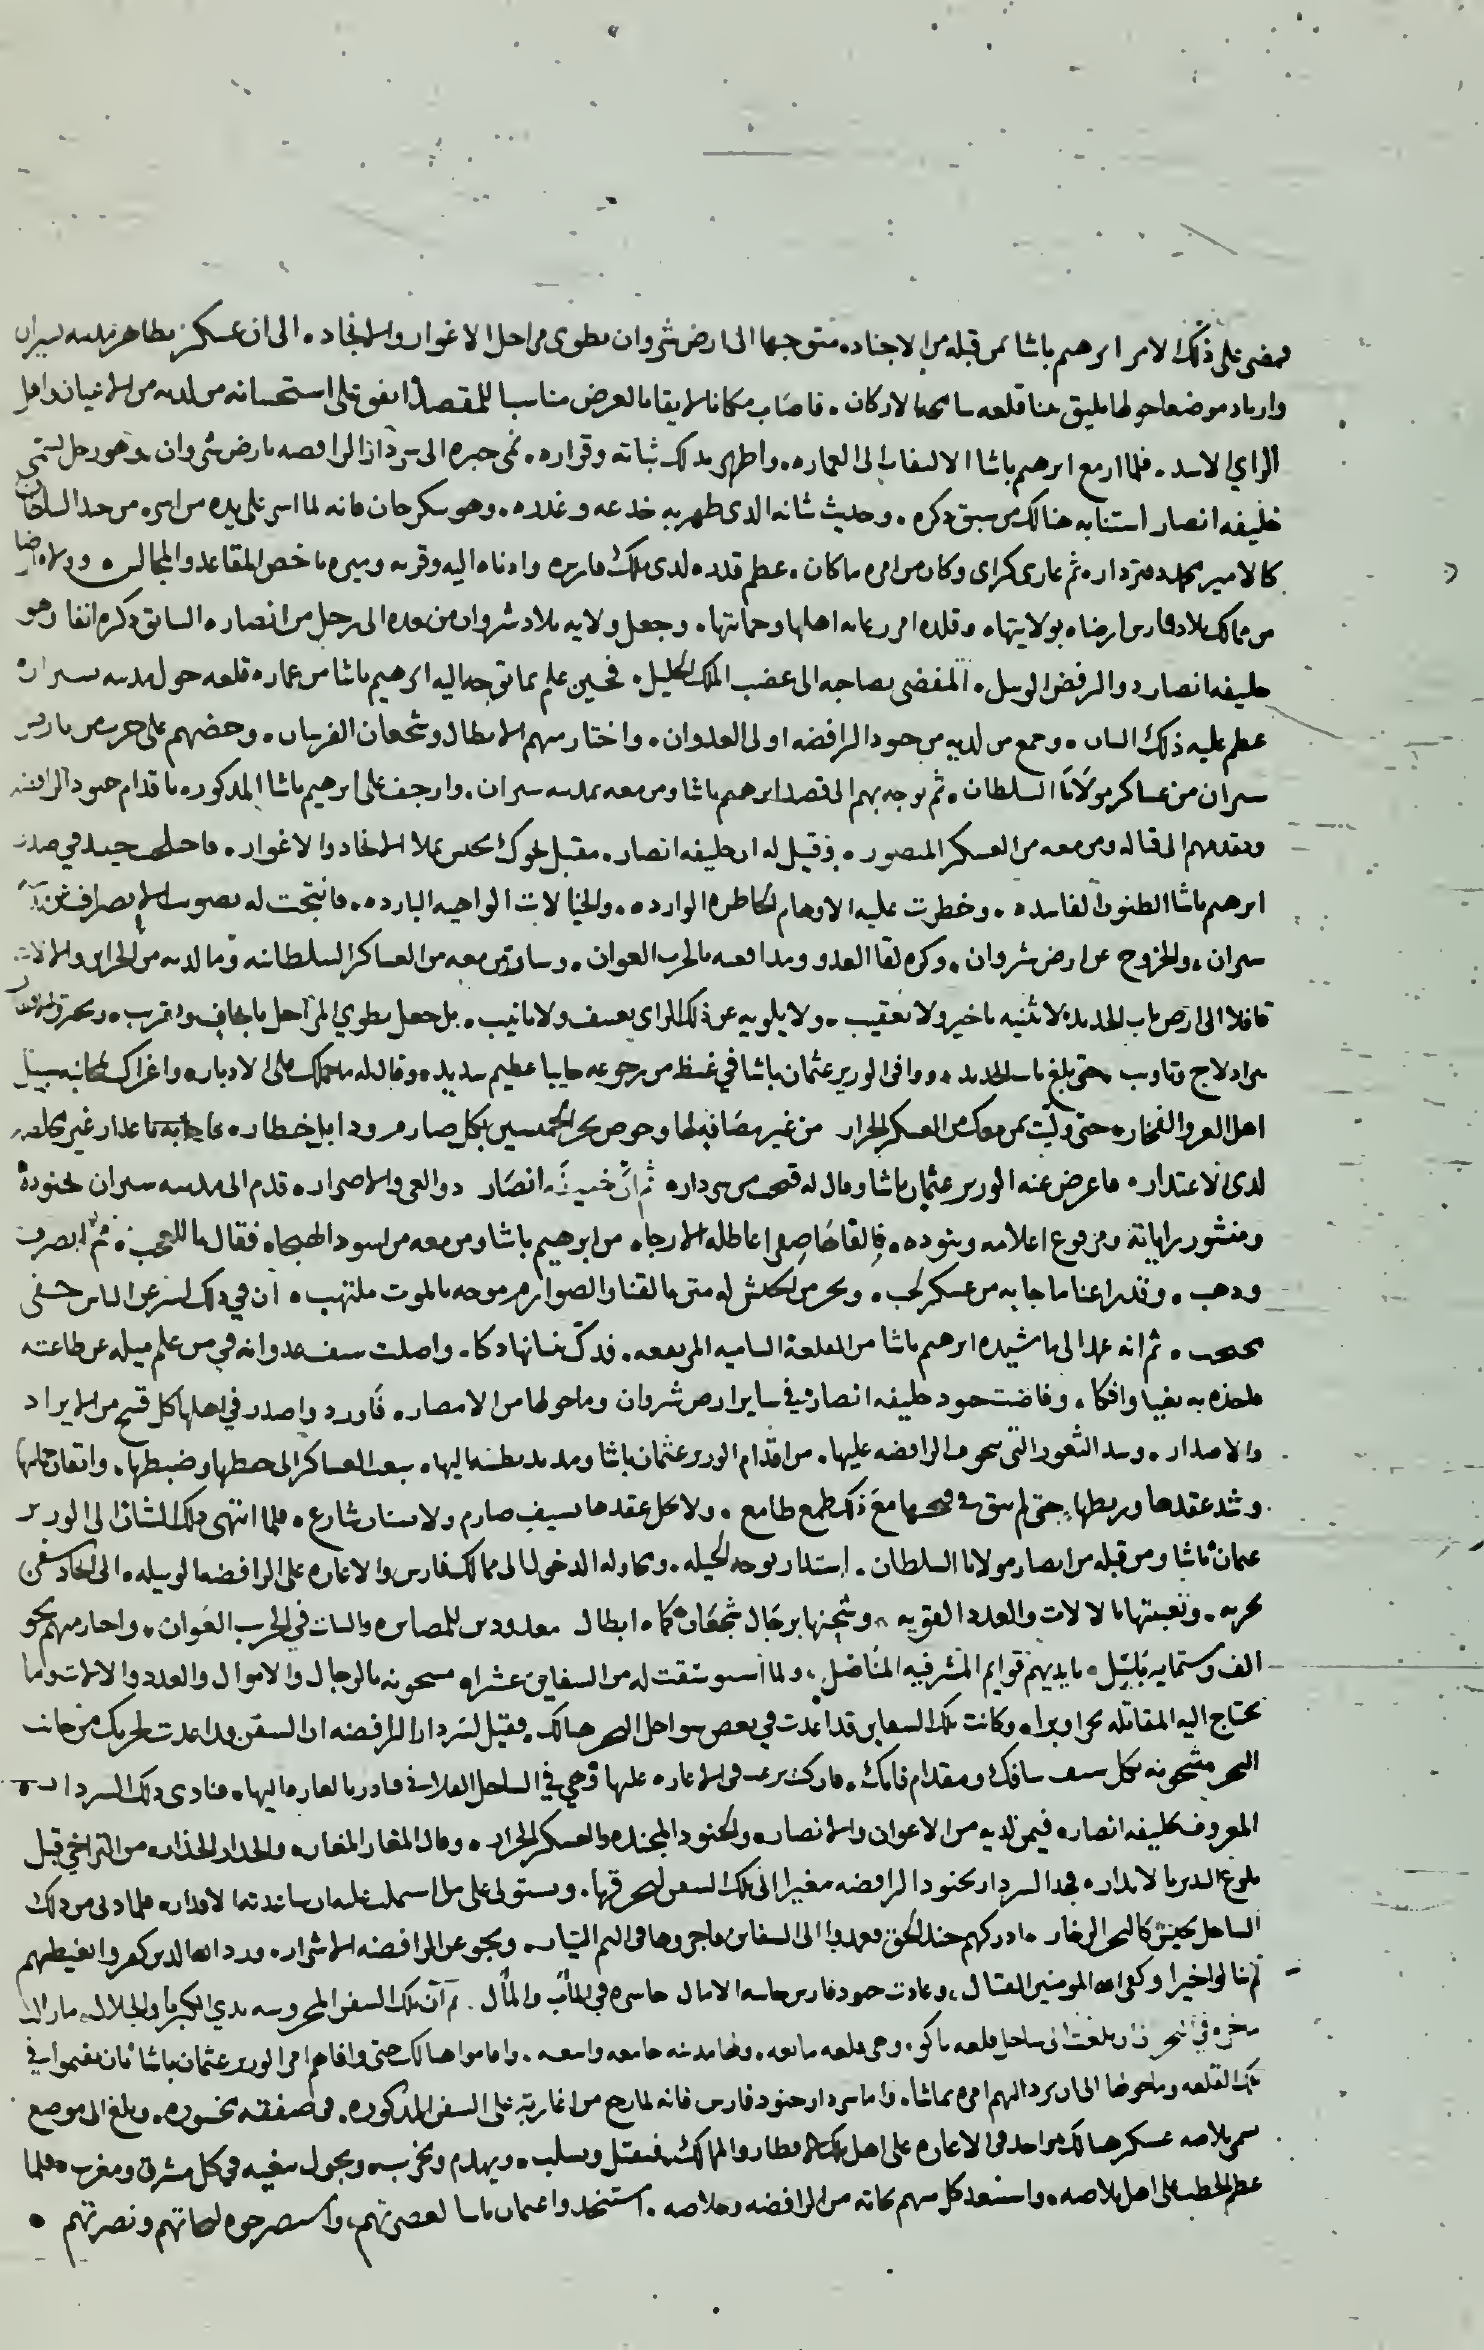 فمضى على ذلك الامر ابرهيم باشا بمن قبله من الاجناد، متوجها الى ارض شروان يطوى مراحل الاغوار والانجاد، الى ان عسكر بظاهر مدينه
وارتاد موضعا حولها يليق بنا قلعه سامحه الاركان، فاصاب مكانا لايقا بالغرض مناسبا للمقصد اتفق على استحسانه من لديه من الاعيان واهل
الراي الاسد، فلما ازمع ابرهيم باشا الالتفات الى العماره، واظهر بذلك ثباته وقراره، نمى خبره الى سردار الرافضه بارض شروان، وهو رجل يسمى
خليفه انصار استنابه هنالك من سبق ذكره، وحديث شانه الذى ظهر به خدعه وغدره، وهو سكر خان فانه لما اسر على يده من اسره من جند السلطان
كالامير محمد دفتردار، ثم غازى كراى وكان من امره ما كان، عظم قدره لدى ملك فارس وادناه اليه وقربه وميزه باخص المقاعد والمجالس
من ممالك بلاد فارس ارضاه بولايتها، وقلده امر رعايه اهلها وحمايتها، وجعل ولايه بلاد شروان من بعده الى رجل من انصاره السابق ذكره انفا وهو
خليفه انصار ذو الرفض الوبيل، المفضى بصاحبه الى غضب الملك الجليل، فحين علم بما توجه اليه ابرهيم باشا من عماره قلعه حول مدينه
عظم عليه ذلك الشان، وجمع من لديه من جنود الرافضه اولى العدوان، واختار منهم الابطال وشجعان الفرسان، وحضهم على حرب من
من عساكر مولانا السلطان، ثم توجه بهم الى قصد ابرهيم باشا ومن معه بمدينه، وارجف على ابرهيم باشا المذكور باقدام جنود الرافضه
وتقدمهم الى قتاله ومن معه من العسكر المنصور، وقيل له ان خليفه انصار، مقبل نحوك بجيش يملا الانجاد والاغوار، في صدر
ابرهيم باشا الظنون الفاسده، وخطرت عليه الاوهام الخاطره الوارده، والخيالات الواهيه البارده، فانتجت له بصوب الانصراف عن
والخروج عن ارض شروان، وكره لقا العدو ومدافعته بالحرب العوان، وسار بمن معه من العساكر السلطانيه وما لديه من الخزاين والالات
قافلا الى ارض باب الحديد لا تثنيه تاخير ولا تعقيب، ولا يلويه عن ذلك الراى تعسف ولا تانيب، بل جعل يطوي المراحل
من ادلاج وتاويب، حتى بلغ باب الحديد، ووافى الوزير عثمان باشا في غيظ من رجوعه خايبا عظيم شديد، وقال له ما حملك على الادبار
اهل العز والفخار، حتى وليت بمن معك من العسكر الجرار من غير مصافه لها وخوض بحر الخميسين بكل صارم وذابل خطار، فاجابه باعذار غير مخلصه
لدى الاعتذار، فاعرض عنه الوزير عثمان باشا وقال له قبحت من سردار، ثم ان خليفه انصار ذو الغى والاصرار، قدم الى مدينه بجنوده
ومنشور راياته ومرفوع اعلامه وبنوده، فالفاها صفرا عاطله الارجا، من ابرهيم باشا ومن معه من اسود الهيجا، فقال يا للعجب، ثم انصرف
وذهب، وقد راعنا ما جا به من عسكر لجب، وبحر من الجيش له متى بالقنا والصوارم موجه بالموت ملتهب، ان في ذلك لسر عن الناس خفى
محتجب، ثم انه عمد الى ما شيده ابرهيم باشا من القلعة الساميه المرتفعه، فدك بنيانها دكا، واصلت سيف عدوانه في من علم ميله عن طاعته
بغيا وافكا، وفاضت جنود خليفه انصار في ساير ارض شروان وما حولها من الامصار، فاورد واصدر في اهلها كل قبيح من الايراد
والاصدار، وسد الثغور التى يتخوف الرافضه عليها، من اقدام الوزير عثمان باشا ومد يد بطشه اليها، ببعث العساكر الى حفظها وضبطها، واتقان
وشد عقدها وربطها، حتى لم يبق فى فتحها مع ذلك طمع طامع، ولا حل عقدها بسيف صارم ولا سنان شارع، فلما انتهى ذلك الشان الى الوزير
عثمان باشا ومن قبله من انصار مولانا السلطان، استدار بوجه الحيله، ومحاوله الدخول الى ممالك فارس والاغاره على الرافضه بالوسيله، الى اتخاذ سفن
بحريه، وتعبيتها بالالات والعدد القويه، وشحنها برجال شجعان كماه ابطال معدودين للمصابره والثبات في الحرب العوان، واختار منهم نحو
الف وستمايه بايديهم قوايم المشرفيه المناضل، ولما استوسقت له من السفاين عشرا، مشحونه بالرجال والاموال والعدد والالات وما
يحتاج اليه المقاتله بحرا وبرا، وكانت تلك السفاين قد اعدت في بعض سواحل البحر هنالك، فقيل لسردار الرافضه ان السفن قد اعدت لحربك من جانب
البحر مشحونه بكل سيف سافك ومقدام فاتك، فان كنت ترغب فى الاغاره عليها فهي في الساحل الفلانى فبادر بالغاره اليها، فنادى ذلك السردار
المعروف بخليفه انصار، فيمن لديه من الاعوان والانصار، والجنود المجنده والعسكر الجرار، وقال المغار المغار، والحذار الحذار، من التراخي قبل
بلوغ النذير بالانذار، فجدا السردار بجنود الرافضه مغيرا الى تلك السفن ليحرقها، ويستولى على من اشتملت عليه ان ساعدته الاقدار، فلما دنى من ذلك
الساحل بجيش كالبحر الزخار، ادركهم جند الحق فعمدوا الى السفاين فاجروها فى اليم التيار، ونجو عن الرافضه الاشرار، ورد الله الذين كفروا بغيظهم
لم ينالوا خيرا وكفى الله المومنين القتال، وعادت جنود فارس خايبه الامال خاسره في المآب والمآل، ثم ان تلك السفن المحروسه بذي الكبريا والجلال، مازالت
في البحر الى ان بلغت الى ساحل قلعه باكو، وهى قلعه مانعه، ولها مدينه جامعه واسعه، واقاموا هنالك حتى وافاهم امر الوزير عثمان باشا بان يقيموا في
تلك القلعه وما حولها الى ان يرد اليهم امره بما شا، واما سردار جنود فارس فانه لما رجع من اغارته على السفن المذكوره، فى صفقه مخسوره، وبلغ الى موضع
يسمى بلاصه عسكر هنالك واخذ فى الاغاره على اهل تلك الاقطار والممالك، فيقتل ويسلب، ويهدم ويخرب، ويجول ببغيه في كل مشرق ومغرب، فلما
عظم الخطب على اهل بلاصه، واستبعد كل منهم نجاته من الرافضه وخلاصه، استنجدوا عثمان باشا لعصرتهم، واستصرخوه لنجاتهم ونصرتهم